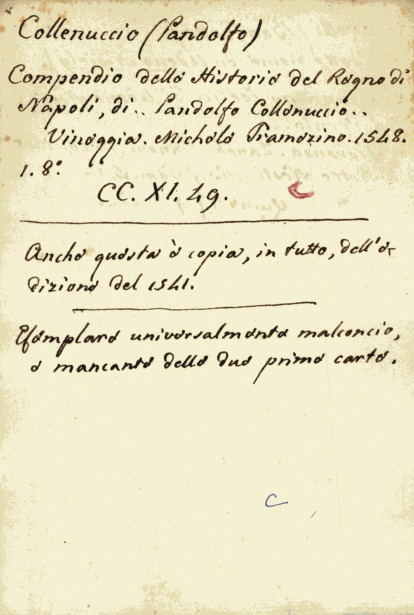 Collenuccio (Pandolfo)
Compendio delle Historie del Regno di
Napoli, di.. Pandolfo Collenuccio..
Vineggia. Michele Tramezino. 1548.
1. 8.°
CC. XI. 49.
C
Anche questa è copia, in tutto, dell'e-
dizione del 1541.
Esemplare universalmente malconcio,
e mancante delle due prime carte.
C